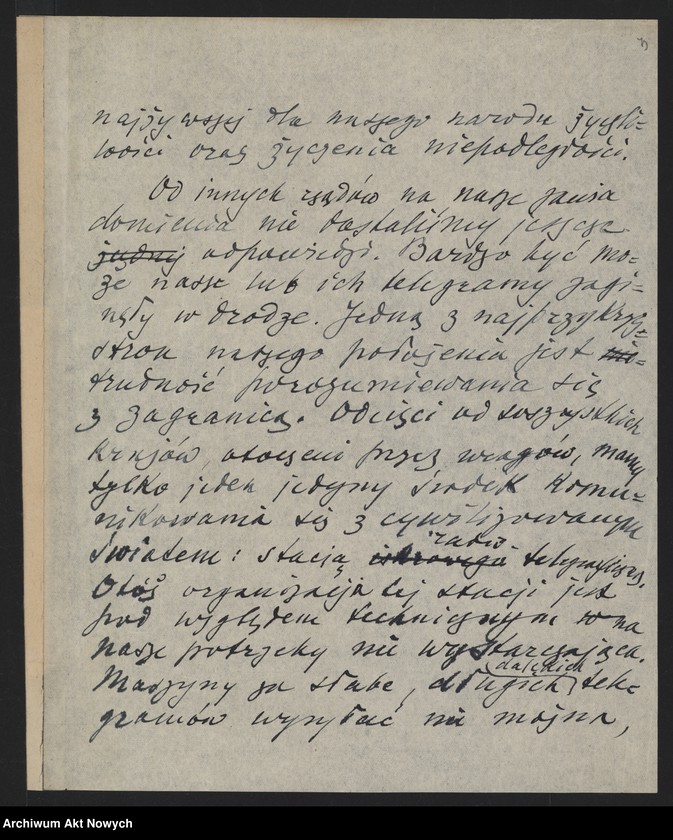 najżywszej dla naszego narodu życzli-
wości oraz życzenia niepodległości.
Od innych rządów na nasze zawia
domienia nie dostaliśmy jeszcze
żadnej odpowiedzi. Bardzo być mo-
że nasze lub ich telegramy zagi-
nęły w drodze. Jedną z najprzykrzej-
stron naszego położenia jest
trudność porozumiewania się
z zagranicą. Odcięci od wszystkich
krajów, otoczeni przez wrogów, mamy
tylko jeden jedyny środek komu-
nikowania się z cywilizowanym
radio
światem: stacją iskrowego telegraficzną.
Otóż organizacja tej stacji jest
pod względem technicznym na
nasze potrzeby nie wystarczająca.
dalekich
Maszyny za słabe, długich tele-
gramów wysyłać nie można,
Archiwum Akt Nowych